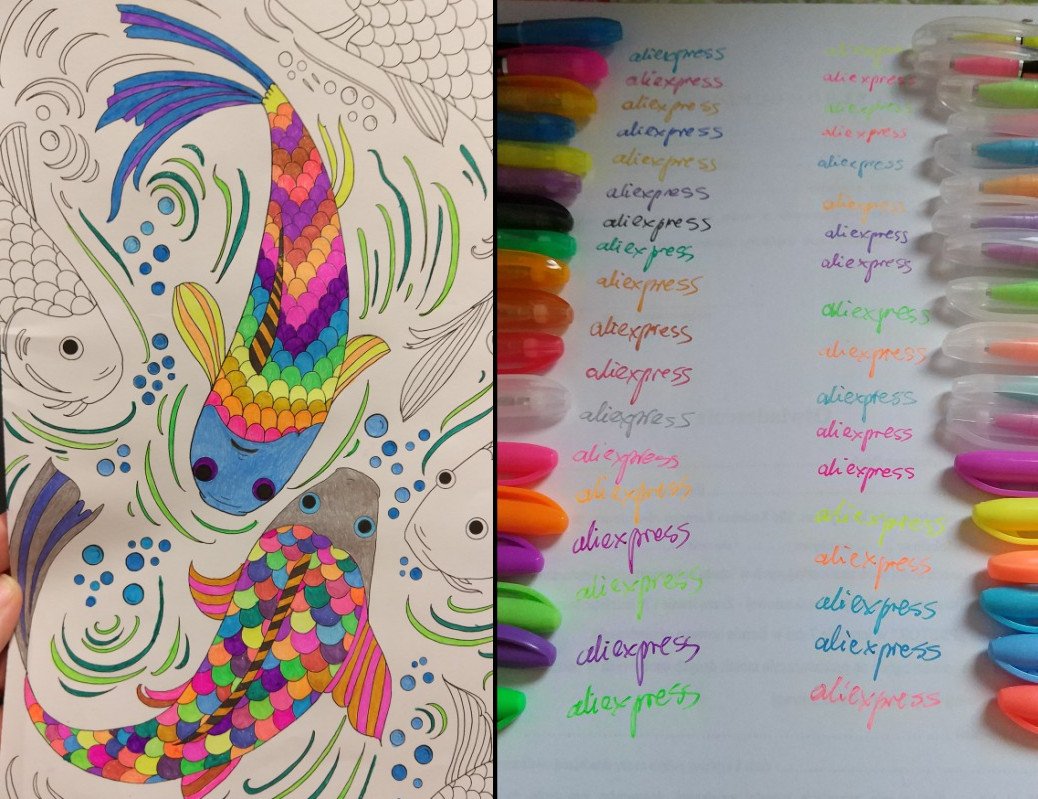 aliexpress
aliexpress
aliexpress
aliexpress
aliexpress
aliexpress
aliexpress
aliexpress
aliexpress
aliexpress
aliexpress
aliexpress
aliexpress
aliexpress
aliexpress
aliexpress
aliexpress
aliexpress
aliexpress
aliexpress
aliexpress
aliexpress
aliexpress
aliexpress
aliexpress
aliexpress
aliexpress
aliexpress
aliexpress
aliexpress
aliexpress
aliexpress
aliexpress
aliexpress
aliexpress
aliexpress